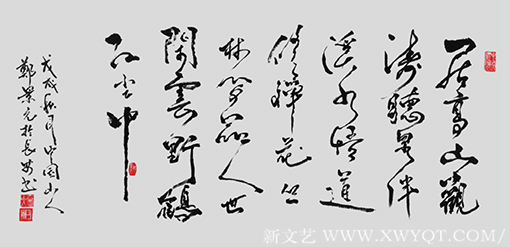 一居高山觀
濤聽伴
溪水悟道
修禪花丛
林间品人世
閑雲野鶴
空中
戊戌秋月中国山人
鄭景元於長安书
新文艺 WWW.XWYQT.COM/